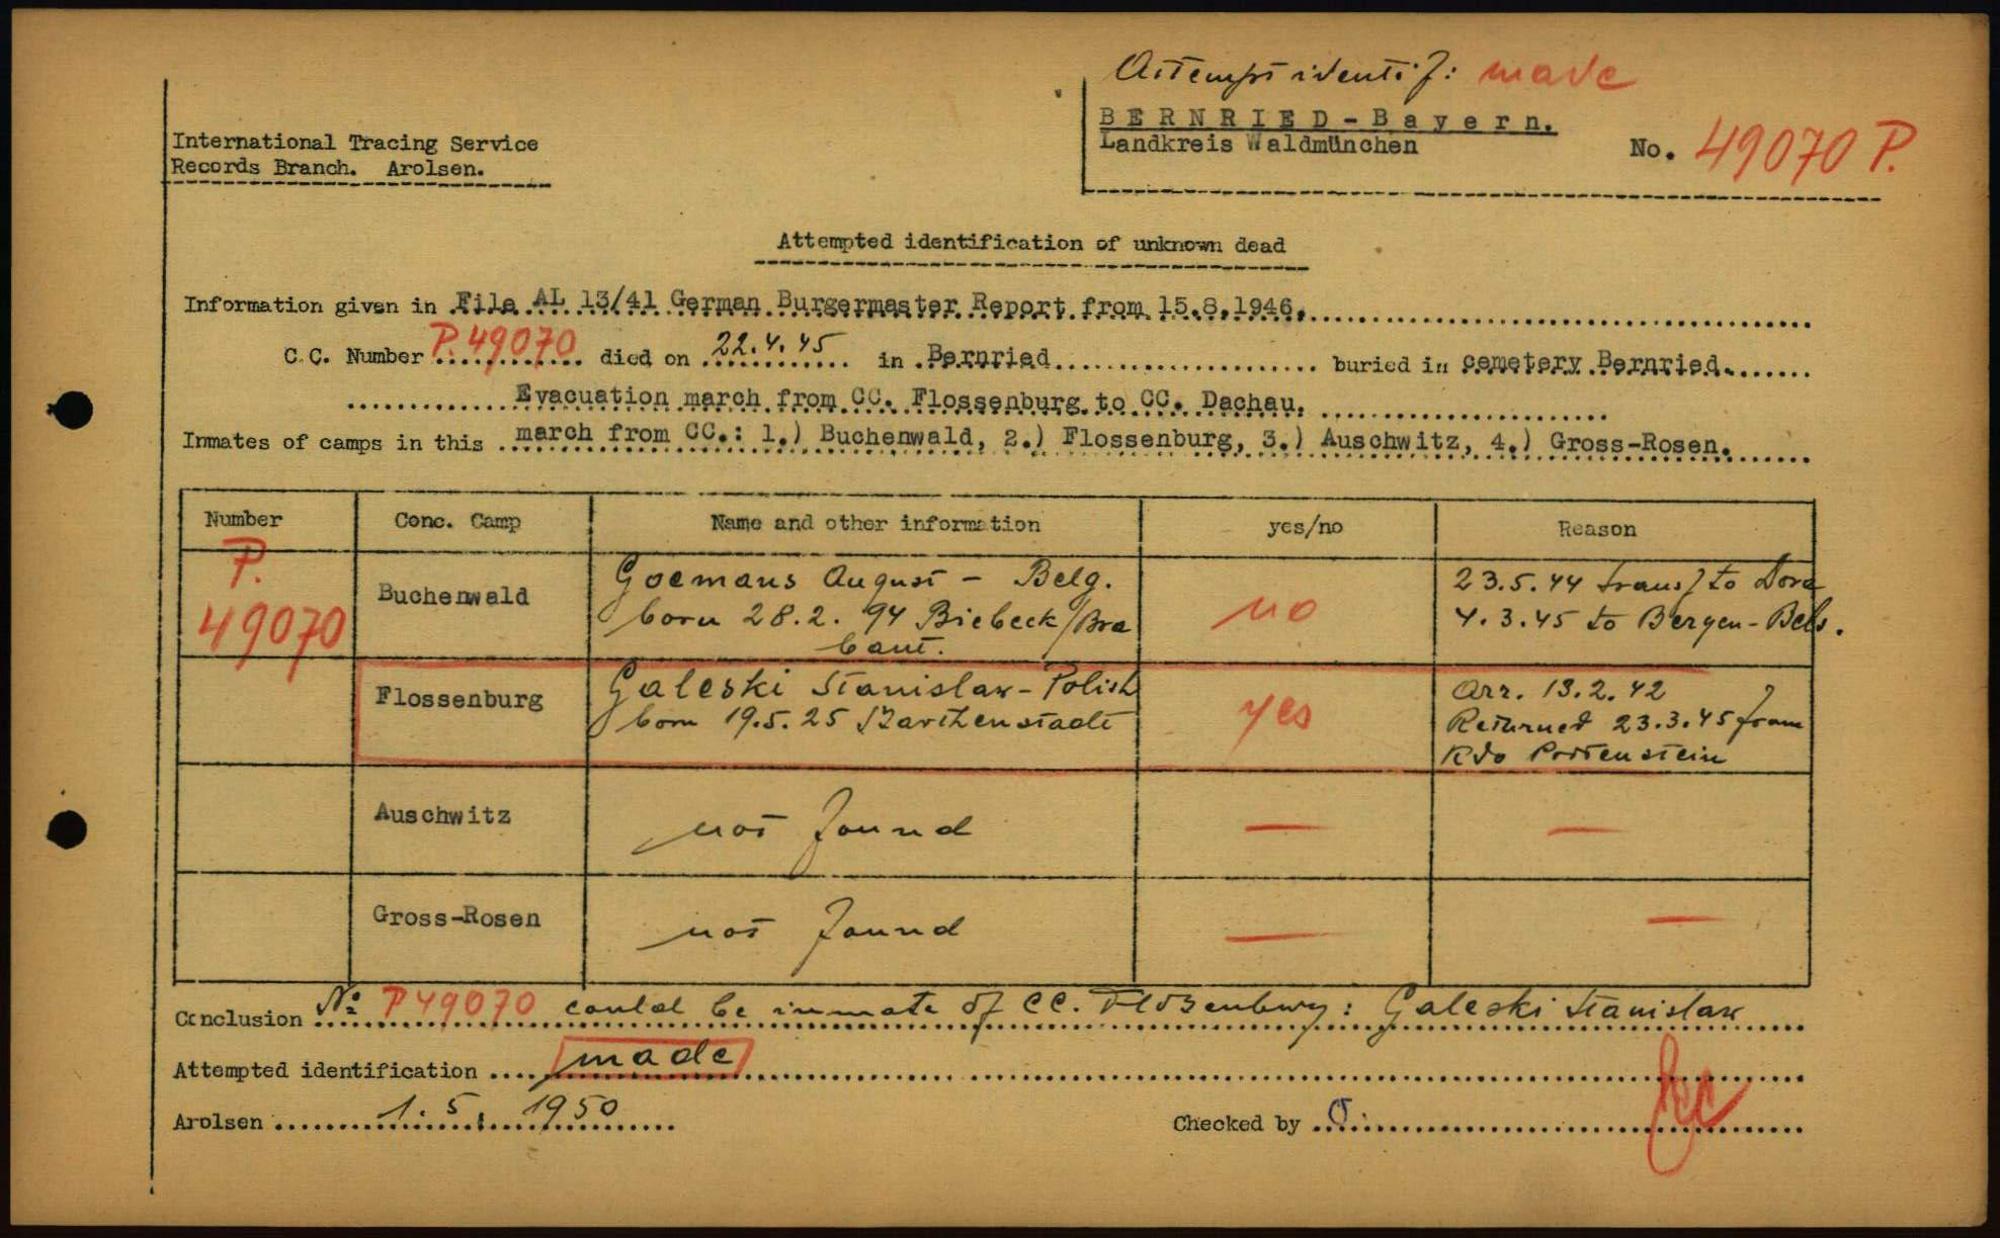 Attempt identif: made
BERNRIED-Bayern.
Landkreis Waldmünchen
No. 49070 P.
International Tracing Service
Records Branch. Arolsen.
Attempted identification of unknown dead
Information given in File AL 13/41 German Burgermaster Report from 15.8.1946.
C.C. Number P.49070 died on 22.4.45 in Bernried buried in cemetery Bernried.
Evacuation march from CC. Flossenburg to CC. Dachau.
Inmates of camps in this march from CC.: 1.) Buchenwald, 2.) Flossenburg, 3.) Auschwitz, 4.) Gross-Rosen.
Number Conc. Camp Name and other information yes/no Reason
P. 49070 Buchenwald
Goemans August - Belg.
born 28.2.94 Biebeck/Bra
bant.
no
23.5.44 transf to Dora
4.3.45 to Bergen-Bels.
Flossenburg
Galeski Stanislaw - Polish
born 19.5.25
yes
Arr. 13.2.42
Returned 23.3.45 from
Kdo Pottenstein
Auschwitz not found — —
Gross-Rosen not found — —
Conclusion No: P49070 could be inmate of CC. Flossenburg: Galeski Stanislaw
Attempted identification made
Arolsen 1.5.1950
Checked by